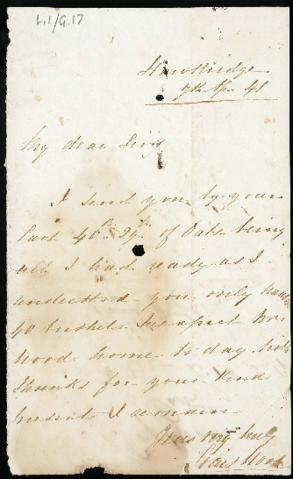 L.1/G.17
My dear Sir
I send you by your
Cart 40 of Oats being
all I had ready as I
understood you only want
40 bushels. We expect Mr.
Wood home to day with
thanks for your kind
present I remain
Yours very truly
Wood